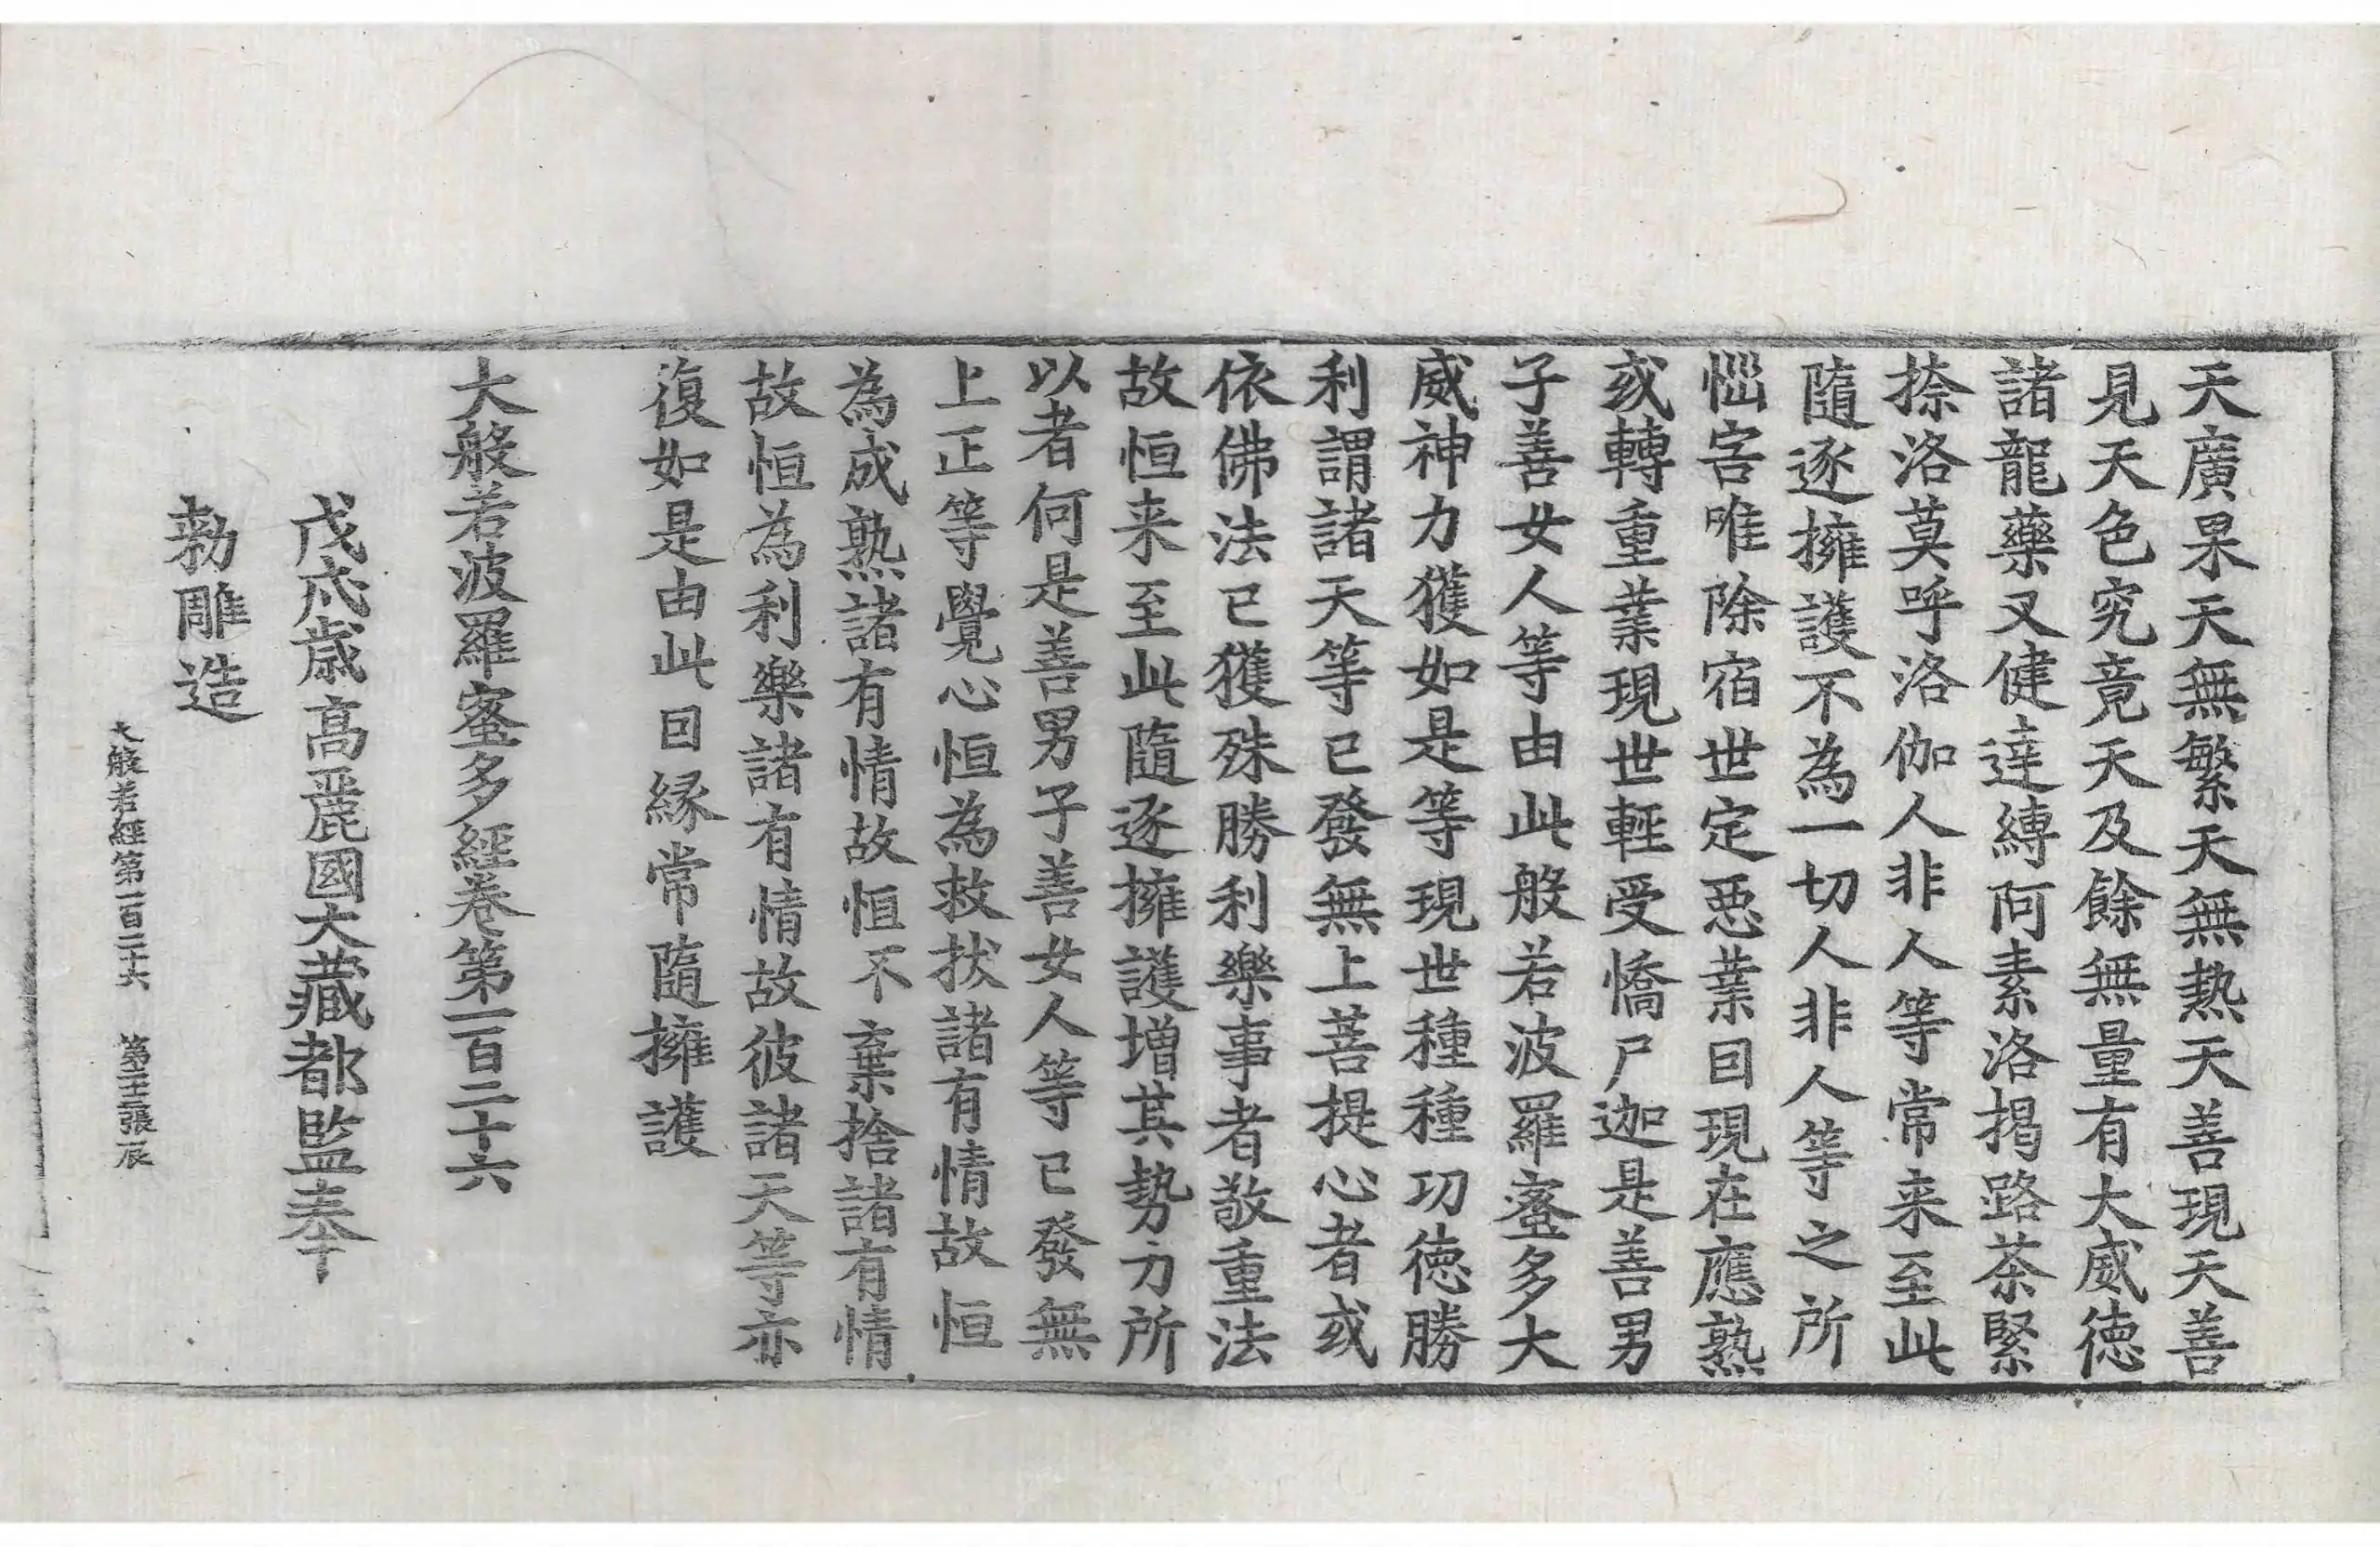 天廣果天無繁天無熱天善現天善
見天色究竟天及餘無量有大威徳
諸龍藥叉健達縛阿素洛揭路茶緊
捺洛莫呼洛伽人非人等常来至此
隨逐擁護不為一切人非人等之所
惱害唯除宿世定惡業因現在應熟
或轉重業現世輕受憍尸迦是善男
子善女人等由此般若波羅蜜多大
威神力獲如是等現世種種功徳勝
利謂諸天等已發無上菩提心者或
依佛法已獲殊勝利樂事者敬重法
故恒来至此隨逐擁護增其勢力所
以者何是善男子善女人等已發無
上正等覺心恒為救拔諸有情故恒
為成熟諸有情故恒不棄捨諸有情
故恒為利樂諸有情故彼諸天等亦
復如是由此因緣常隨擁護
大般若波羅蜜多經卷第一百二十六
戊戌歲高麗國大藏都監奉
勑雕造
大般若經第一百二十六 第二十三張 辰